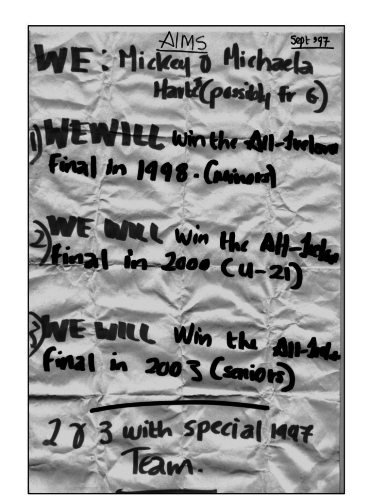 AIMS Sept '97
WE: Mickey & Michaela
Harte (possibly Fr G)
1) WE WILL win the All-Ireland
final in 1998. (minors)
2) WE WILL win the All-Irelan
final in 2000 (U-21)
3) WE WILL win the All-Irela
final in 2003 (seniors)
2 & 3 with special 1997
Team.